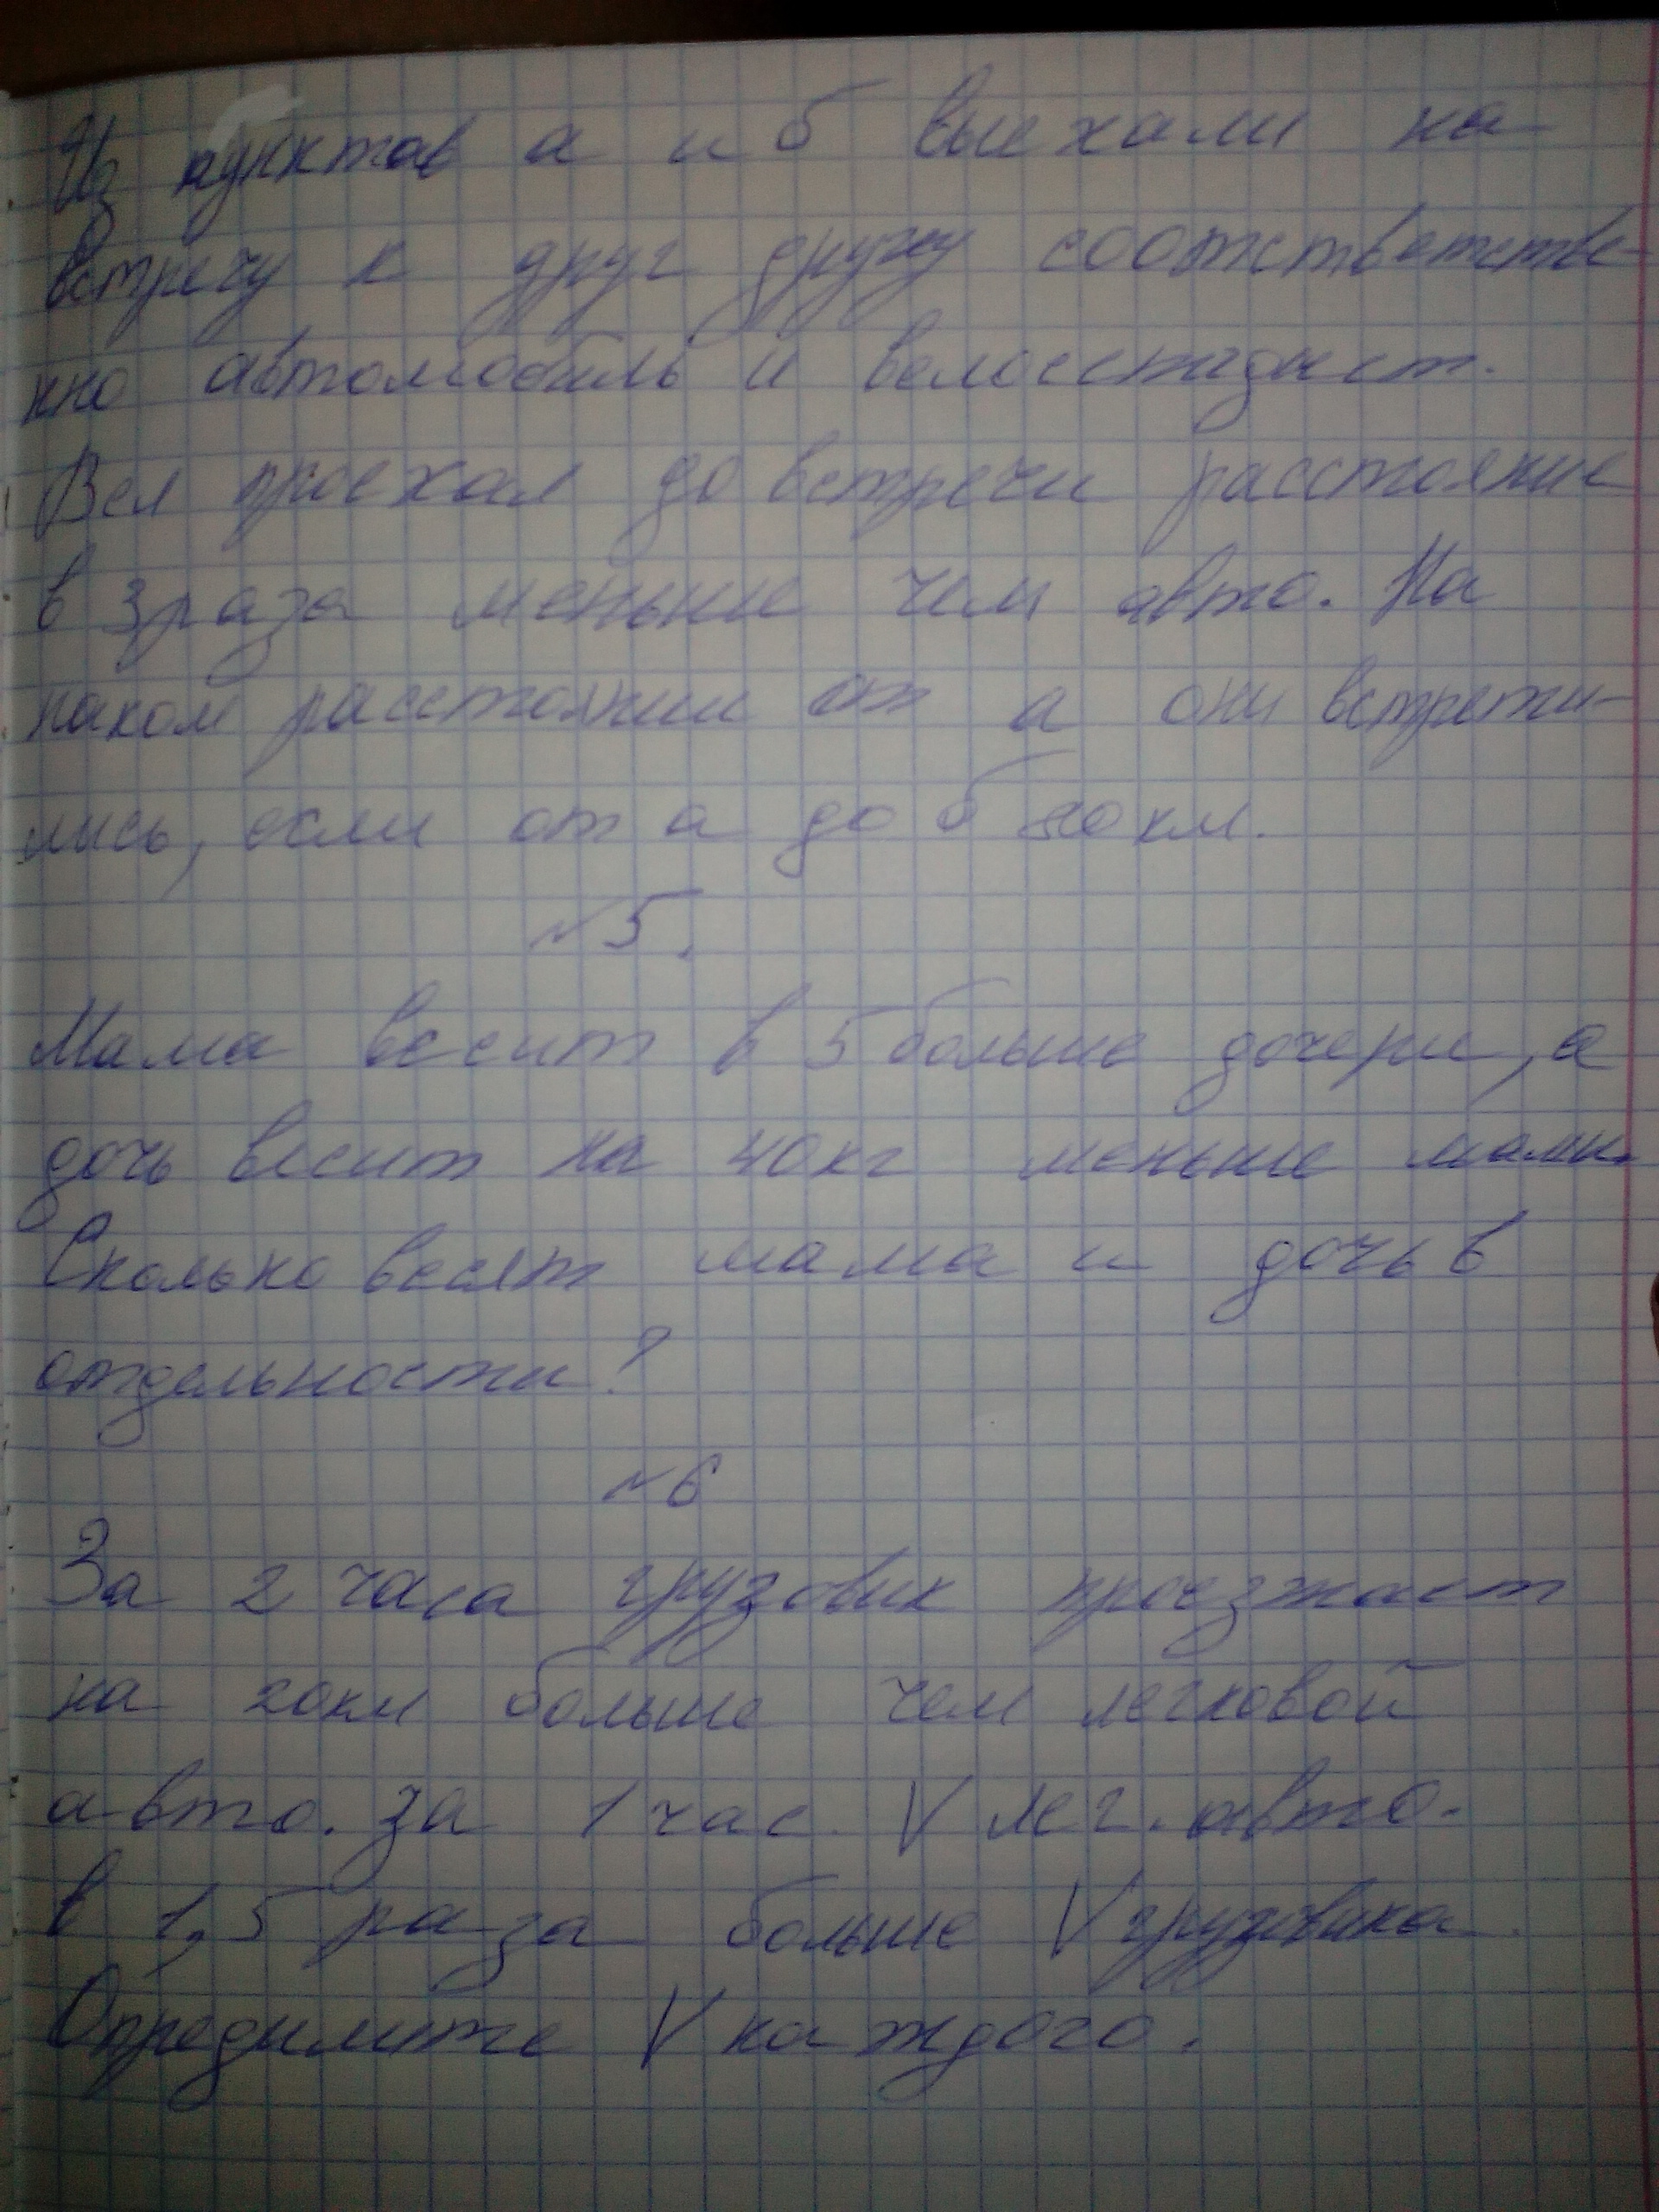 Из пунктов а и б выехали на
встречу к друг другу соответстве-
нно автомобиль и велосепидист.
Вел проехал до встречи расстояние
в 3 раза меньше чем авто. На
каком расстоянии от а они встрети-
лись, если от а до б км.
№5.
Мама весит в 5 больше дочери, а
дочь весит на 40кг меньше мамы.
Сколько весят мама и дочь в
отдельности?
№6
За 2 часа грузовик проезжает
на 20км больше чем легковой
авто. за 1 час. V лег. авто.
в 1,5 раза больше V грузовика.
Определите V каждого.